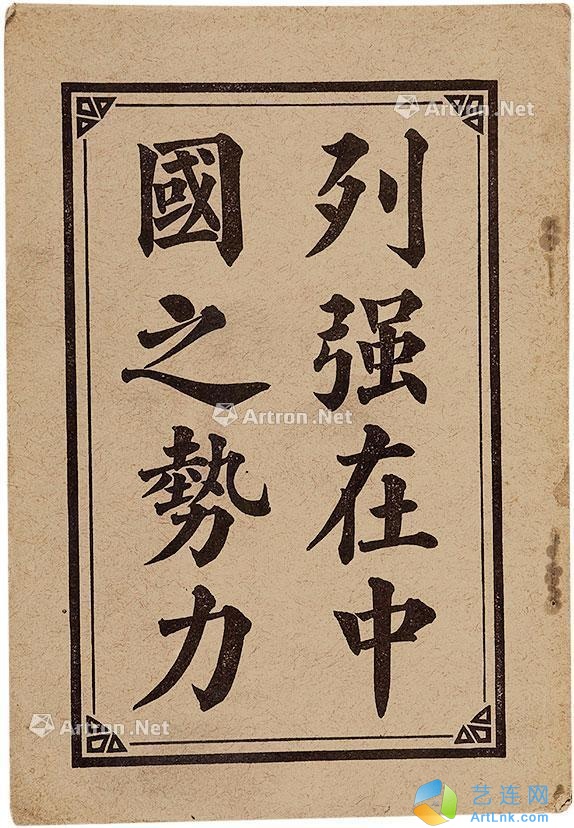 列强在中
國之勢力
Artron.Net
Artron.Net
Artron.Net
艺连网
ArtLnk.com